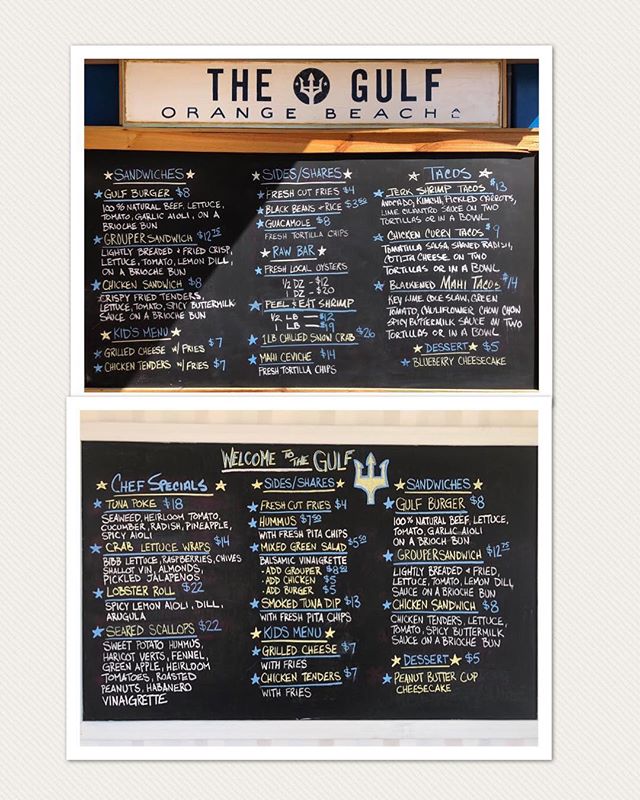 THE GULF
ORANGE BEACH
SANDWICHES
GULF BURGER $8
100% NATURAL BEEF, LETTUCE,
TOMATO, GARLIC AIOLI, ON A
BRIOCHE BUN
GROUPER SANDWICH $12.75
LIGHTLY BREADED & FRIED CRISP,
LETTUCE, TOMATO, LEMON DILL,
ON A BRIOCHE BUN
CHICKEN SANDWICH $8
CRISPY FRIED TENDERS,
LETTUCE, TOMATO, SPICY BUTTERMILK
SAUCE ON A BRIOCHE BUN
KID'S MENU
GRILLED CHEESE W/ FRIES $7
CHICKEN TENDERS W/ FRIES $7
SIDES/SHARES
FRESH CUT FRIES $4
BLACK BEANS & RICE $3.50
GUACAMOLE $8
FRESH TORTILLA CHIPS
RAW BAR
FRESH LOCAL OYSTERS
1/2 DZ - $12
1 DZ - $20
PEEL & EAT SHRIMP
1/2 LB - $12
1 LB - $19
1LB CHILLED SNOW CRAB $26
MAHI CEVICHE $14
FRESH TORTILLA CHIPS
TACOS
JERK SHRIMP TACOS $13
AVOCADO, KIMCHI, PICKLED CARROTS,
LIME CILANTRO SAUCE ON TWO
TORTILLAS OR IN A BOWL.
CHICKEN CURRY TACOS $9
TOMATILLO SALSA, SHAVED RADISH,
COTIJA CHEESE ON TWO
TORTILLAS OR IN A BOWL
BLACKENED MAHI TACOS $14
KEY LIME COLE SLAW, GREEN
TOMATO, CAULIFLOWER CHOW CHOW
SPICY BUTTERMILK SAUCE ON TWO
TORTILLAS OR IN A BOWL
DESSERT $5
BLUEBERRY CHEESECAKE
WELCOME TO THE GULF
CHEF SPECIALS
TUNA POKE $18
SEAWEED, HEIRLOOM TOMATO,
CUCUMBER, RADISH, PINEAPPLE,
SPICY AIOLI
CRAB LETTUCE WRAPS $14
BIBB LETTUCE, RASPBERRIES, CHIVES
SHALLOT VIN, ALMONDS,
PICKLED JALAPENOS
LOBSTER ROLL $22
SPICY LEMON AIOLI, DILL,
ARUGULA
SEARED SCALLOPS $22
SWEET POTATO HUMMUS,
HARICOT VERTS, FENNEL,
GREEN APPLE, HEIRLOOM
TOMATOES, ROASTED
PEANUTS, HABANERO
VINAIGRETTE
SIDES/SHARES
FRESH CUT FRIES $4
HUMMUS $7.50
WITH FRESH PITA CHIPS
MIXED GREEN SALAD $5.50
BALSAMIC VINAIGRETTE
· ADD GROUPER $8.50
· ADD CHICKEN $5
· ADD BURGER $5
SMOKED TUNA DIP $13
WITH FRESH PITA CHIPS
KIDS MENU
GRILLED CHEESE $7
WITH FRIES
CHICKEN TENDERS $7
WITH FRIES
SANDWICHES
GULF BURGER $8
100% NATURAL BEEF, LETTUCE,
TOMATO, GARLIC AIOLI
ON A BRIOCH BUN
GROUPER SANDWICH $12.75
LIGHTLY BREADED & FRIED,
LETTUCE, TOMATO, LEMON DILL,
SAUCE ON A BRIOCHE BUN
CHICKEN SANDWICH $8
CHICKEN TENDERS, LETTUCE,
TOMATO, SPICY BUTTERMILK
SAUCE ON A BRIOCHE BUN
DESSERT $5
PEANUT BUTTER CUP
CHEESECAKE